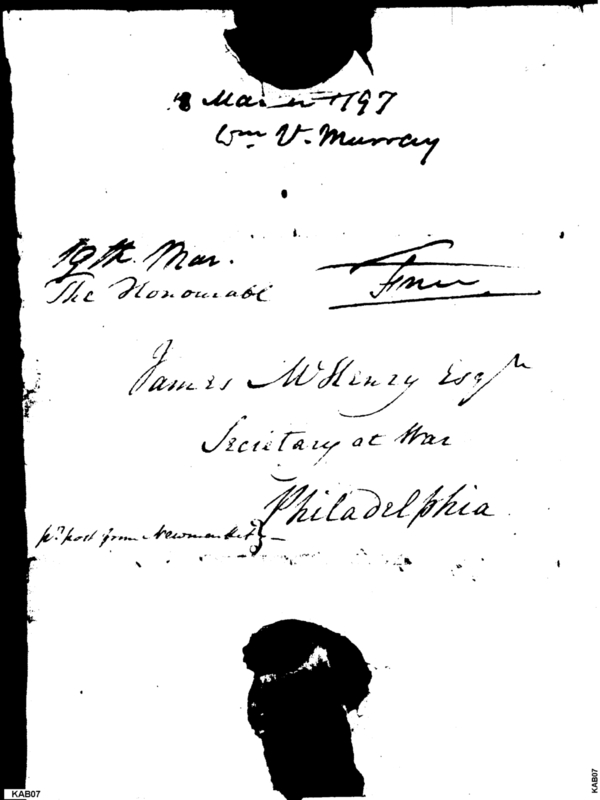 8 March 1797
Wm. V. Murray
19th. Mar.
Free
The Honourable
James McHenry Esqr
Secretary at War
Philadelphia
pr. post from Newmarket
KAB07
KAB07